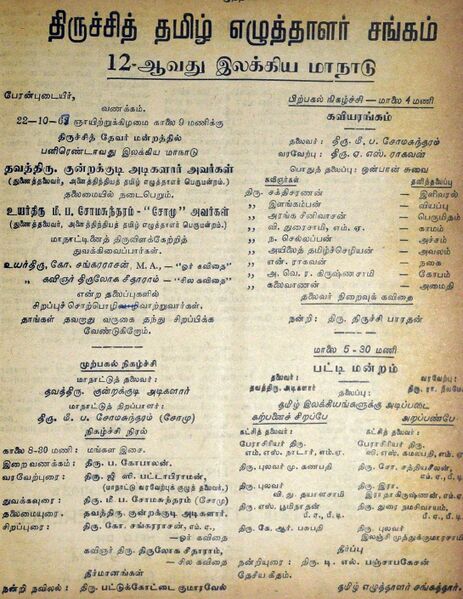 திருச்சித் தமிழ் எழுத்தாளர் சங்கம்
12-ஆவது இலக்கிய மாநாடு
பேரன்புடையீர்,
வணக்கம்.
22-10-6 ஞாயிற்றுக்கிழமை காலை 9 மணிக்கு
திருச்சித் தேவர் மன்றத்தில்
பனிரெண்டாவது இலக்கிய மாகாடு
தவத்திரு. குன்றக்குடி அடிகளார் அவர்கள்
(துணைத்தலைவர், அனைத்திந்தியத் தமிழ் எழுத்தாளர் பெருமன்றம்.)
தலைமையில் நடைபெறும்.
உயர்திரு மீ. ப. சோமசுந்தரம் - "சோமு" அவர்கள்
(துணைத்தலைவர், அனைத்திந்தியத் தமிழ் எழுத்தாளர் பெருமன்றம்.)
மாநாட்டினைத் திருவிளக்கேற்றித்
துவக்கிவைப்பார்கள்.
உயர்திரு, கோ. சங்கரராசன், M.A., — "ஓர் கவிதை"
„ கவிஞர் திருலோக சீதாராம் — "சில கவிதை"
என்ற தலைப்புகளில்
சிறப்புச் சொற்பொழிவாற்றுவார்கள்.
தாங்கள் தவறாது வருகை தந்து சிறப்பிக்க
வேண்டுகிறோம்.
முற்பகல் நிகழ்ச்சி
மாநாட்டுத் தலைவர்:
தவத்திரு. குன்றக்குடி அடிகளார்
மாநாட்டுத் திறப்பாளர்:
திரு. மீ. ப. சோமசுந்தரம் (சோமு)
நிகழ்ச்சி நிரல்
காலை 8-30 மணி: மங்கள இசை.
இறை வணக்கம்: திரு. ப. கோபாலன்.
வரவேற்புரை: திரு. ஜி. ஸி. பட்டாபிராமன்,
(மாநாட்டு வரவேற்புக் குழுத் தலைவர்.)
துவக்கவுரை: திரு. மீ. ப. சோமசுந்தரம் (சோமு)
தலைமையுரை: தவத்திரு. குன்றக்குடி அடிகளார்.
சிறப்புரை: திரு. கோ. சங்கரராசன், எம்.ஏ.,
—ஓர் கவிதை
கவிஞர் திரு. திருலோக சீதாராம்,
— சில கவிதை
தீர்மானங்கள்
நன்றி நவிலல்: திரு. பட்டுக்கோட்டை குமாரவேல்
பிற்பகல் நிகழ்ச்சி — மாலை 4 மணி
கவியரங்கம்
தலைவர்: திரு. மீ. ப. சோமசுந்தரம்
வரவேற்பு: திரு. ஏ. எஸ். ராகவன்
பொதுத் தலைப்பு: ஒன்பான் சுவை
கவிஞர்கள் தனித்தலைப்பு
திரு. சக்திசரணன் — இளிவரல்
„ இளங்கம்பன் — வியப்பு
„ அரங்க சீனிவாசன் — பெருமிதம்
„ வி. துரைசாமி, எம். ஏ. — காமம்
„ ந. செல்லப்பன் — அச்சம்
„ அயிலைத் தமிழ்ச்செழியன் — அவலம்
„ என். ராகவன் — நகை
„ அ. வெ. ர. கிருஷ்ணசாமி — கோபம்
„ கலைவாணன் — அமைதி
தலைவர் நிறைவுக் கவிதை
நன்றி: திரு. திருச்சி பாரதன்
மாலை 5-30 மணி
பட்டி மன்றம்
தலைவர்: வரவேற்பு:
தவத்திரு. அடிகளார் திரு. ரா.
தலைப்பு:
தமிழ் இலக்கியங்களுக்கு அடிப்படை
கற்பனைச் சிறப்பே அறப்பண்பே
கட்சித் தலைவர்: கட்சித் தலைவர்:
பேராசிரியர் திரு. பேராசிரியர் திரு.
எம். எஸ். நாடார், எம்.ஏ. எஸ். கமலபதி, எம். ஏ.
திரு. புலவர் மு. கணபதி திரு. சோ. சத்தியசீலன், எம். ஏ.
திரு. புலவர் திரு. இரா.
வி. து. தயாளசாமி இராதாகிருஷ்ணன், எம். ஏ.
திரு. எஸ். பூமிநாதன் திரு. துரை நமசிவாயம்,
பி. ஏ., பி.டி. பி. ஏ., பி.டி.
திரு. கே. ஆர். பசுபதி திரு. புலவர்
இலஞ்சி முத்துக்குமாரசாமி
தீர்ப்பு
நன்றியுரை: திரு. டி. எஸ். பஞ்சாபகேசன்
தேசிய கீதம்.
தமிழ் எழுத்தாளர் சங்கத்தார்.